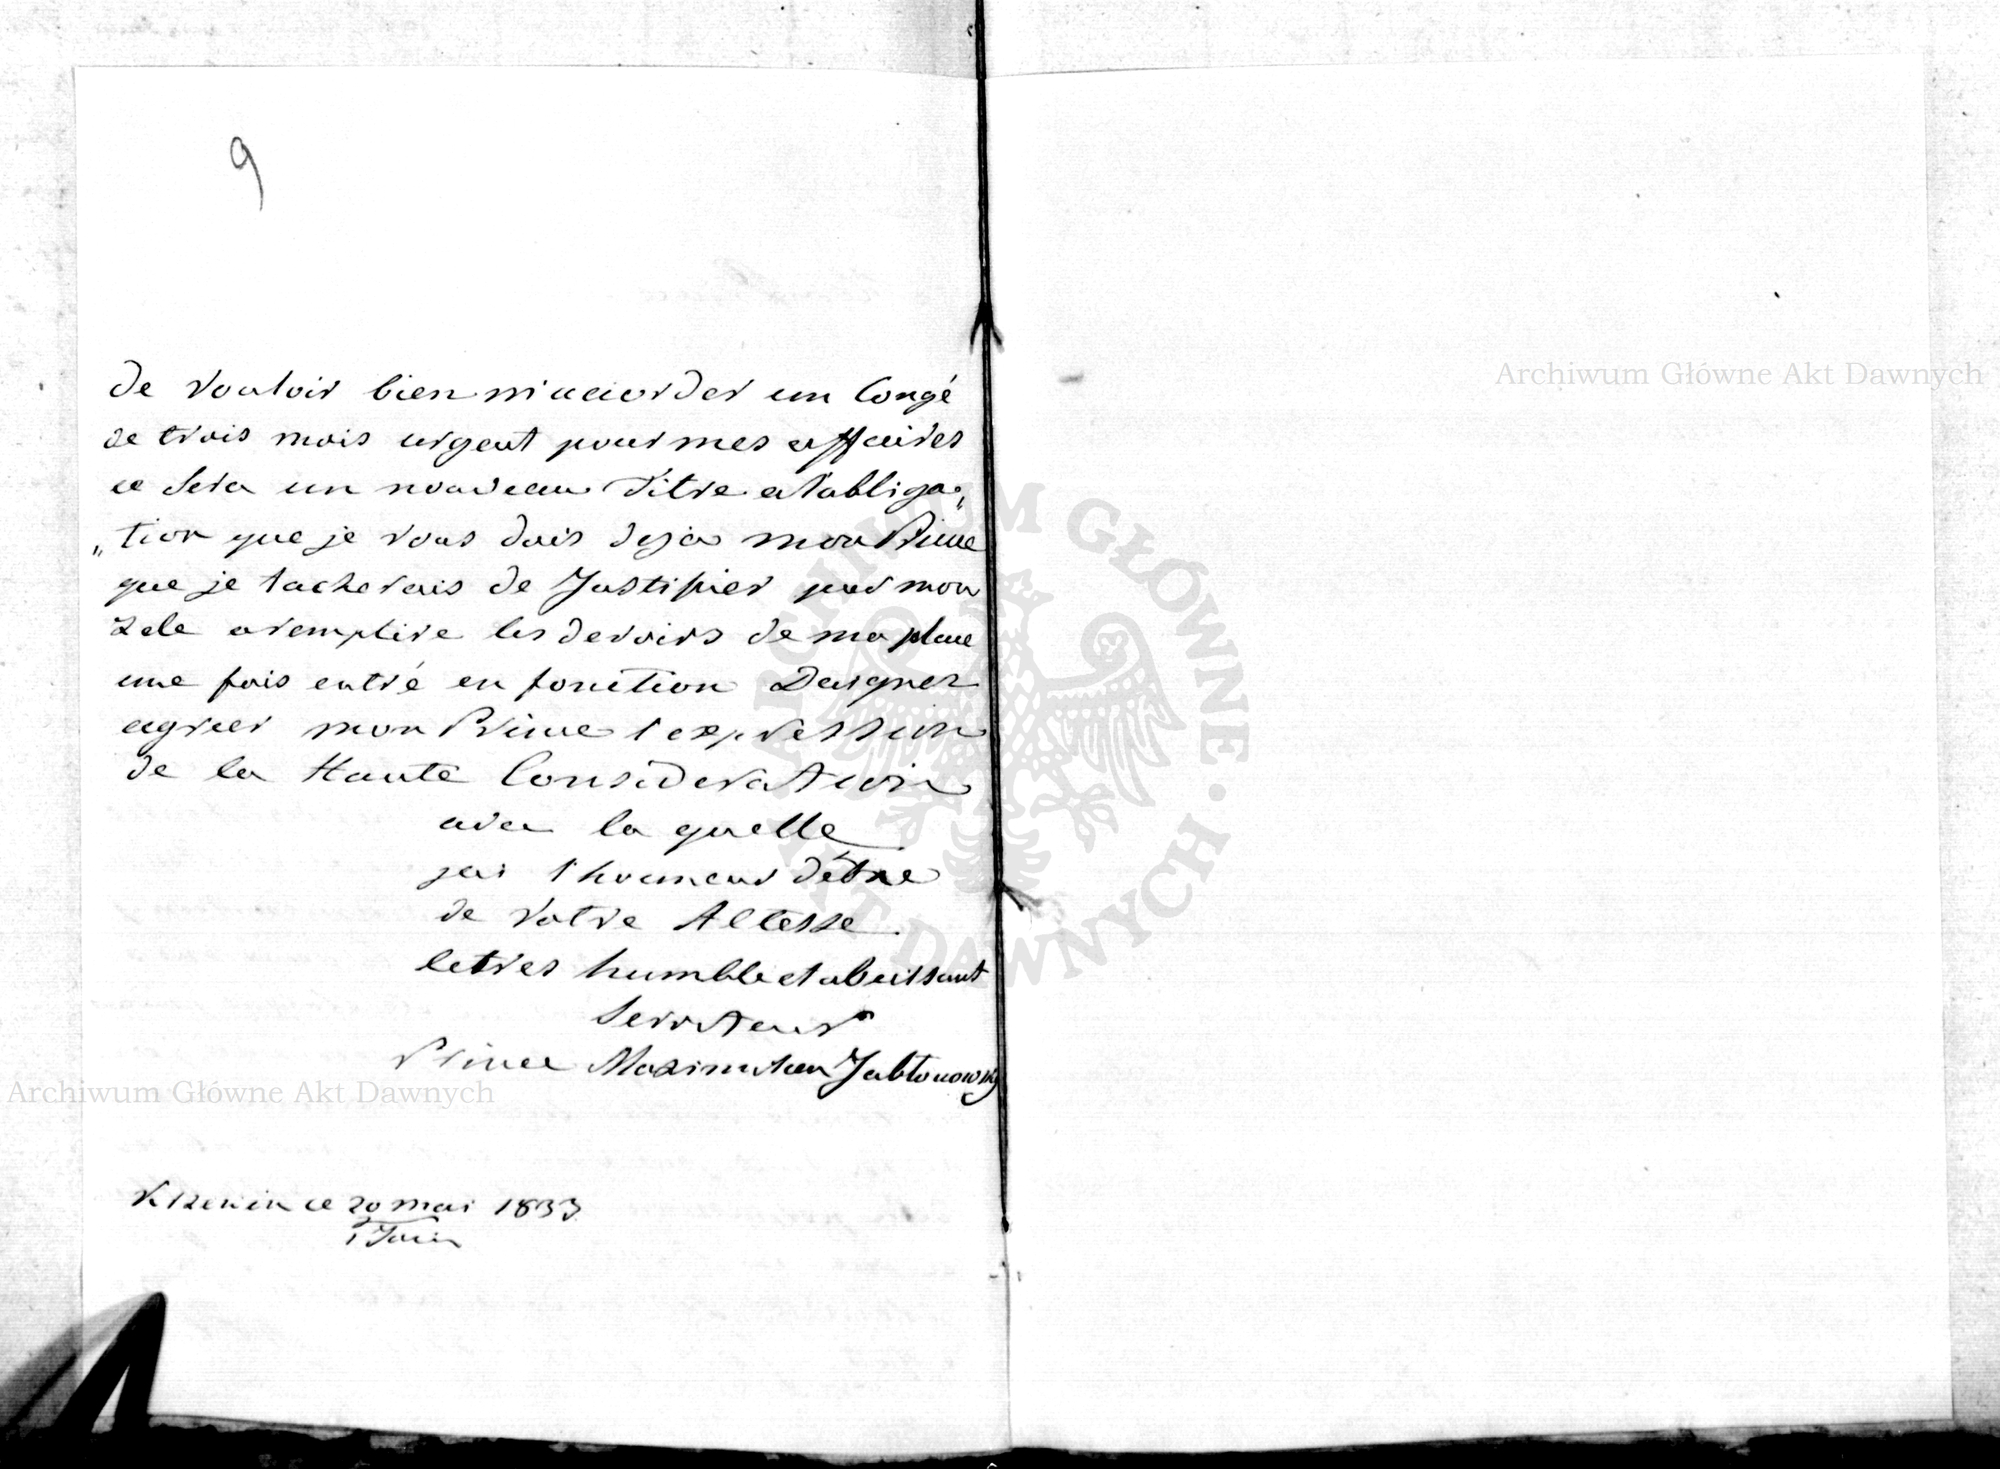 9
de vouloir bien m'accorder un Congé
de trois mois urgent pour mes affaires
ce sera un nouveau Titre a l'abliga„
„tion que je vous dois deja mon Prince
que je tacherais de Justifier par mon
Zele a remplire les devoirs de ma place
une fois entré en fonction Daignez
agreer mon Prince l'expression
de la Haute Consideration
avec la quelle
jai l'honneur d'être
de Votre Altesse.
le tres humble et abeissant
Serviteur
Prince Maximilien Jabłonowsky
ce 20 mai 1833
1 Juin
Archiwum Główne Akt Dawnych
Archiwum Główne Akt Dawnych
ARCHIWUM GŁÓWNE · AKT DAWNYCH ·